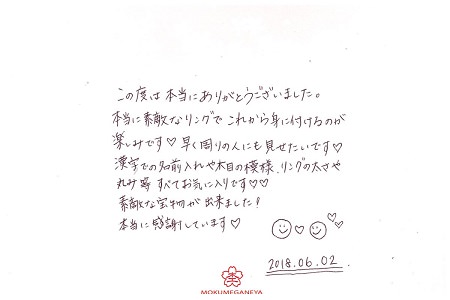 この度は本当にありがとうございました。
本当に素敵なリングでこれから身に付けるのが
楽しみです♡ 早く周りの人にも見せたいです♡
漢字での名前入れや木目の模様、リングの太さや
丸み等 すべてお気に入りです♡♡
素敵な宝物が出来ました!
本当に感謝しています♡
2018.06.02
MOKUMEGANEYA